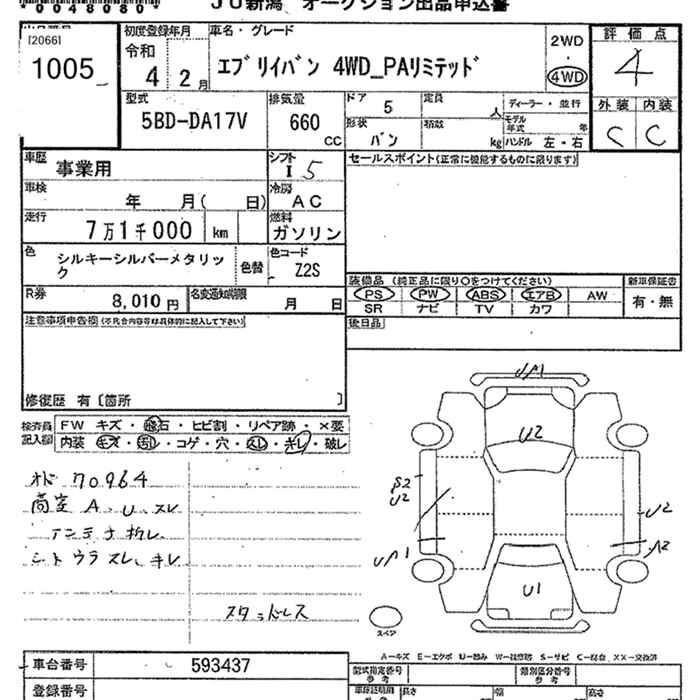 *0048080*
JU新潟 オークション出品申込書
[2066]
1005
初度登録年月
令和
4 2月
車名・グレード
エブリイバン 4WD_PAリミテッド
2WD
・
4WD
評価点
4
外装 内装
C C
型式
5BD-DA17V
排気量
660
CC
ドア 5
定員
人
形状
バン
積数
kg
ディーラー・並行
モデル年式 年
ハンドル 左・右
車歴
事業用
シフト
I 5
車検
年 月( 日)
冷房
AC
走行
7万1千000 km
燃料
ガソリン
色
シルキーシルバーメタリック
色替
色コード
Z2S
R券
8,010 円
名変通知期限
月 日
セールスポイント(正常に機能するものに限ります)
装備品 (純正品に限り○をつけてください)
PS PW ABS エアB AW
SR ナビ TV カワ
新車保証書
有・無
後日品
注意事項申告欄(不具合内容等は具体的に記入して下さい)
修復歴 有〔箇所 〕
検査員記入欄
FW キズ・飛石・ヒビ割・リペア跡・×要
内装 キズ・汚れ・コゲ・穴・スレ・キレ・破レ
オド 70964
荷室 A、U、スレ
アンテナ折レ
シートウラスレ、キレ
スタッドレス
U2
U1
U2
A2
スペア
A－キズ E－エクボ U－凹み W－補修跡 S－サビ C－腐食 XX－交換済
車台番号 593437
登録番号
型式指定番号
参考
類別区分番号
参考
長さ
幅
高さ